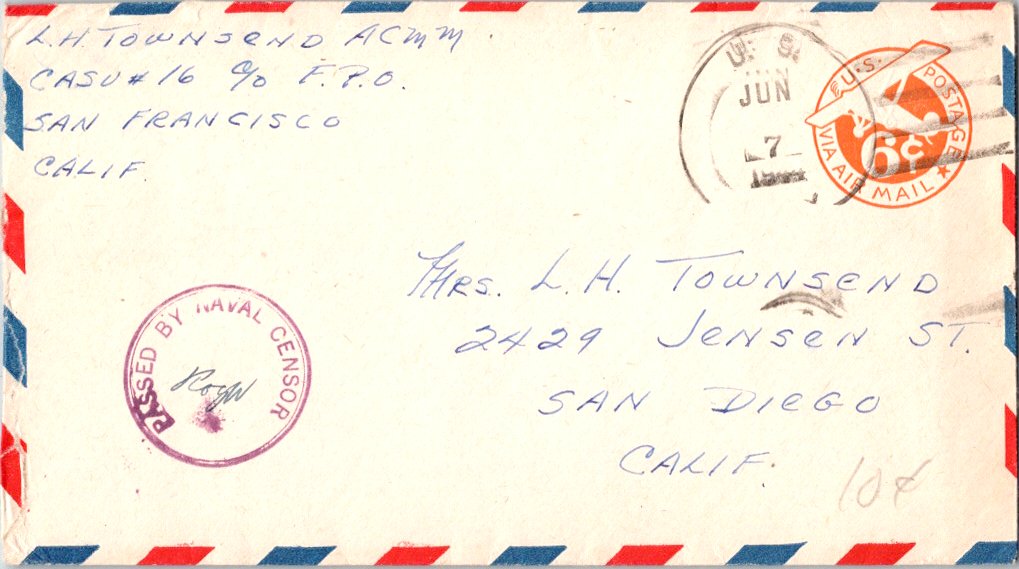 L.H. TOWNSEND ACMM.
CASU #16 c/o F.P.O.
SAN FRANCISCO
CALIF.
U. S.
JUN
7
U.S. POSTAGE
6¢
VIA AIR MAIL
MRS. L. H. TOWNSEND
2429 JENSEN ST.
SAN DIEGO
CALIF.
PASSED BY NAVAL CENSOR
10¢